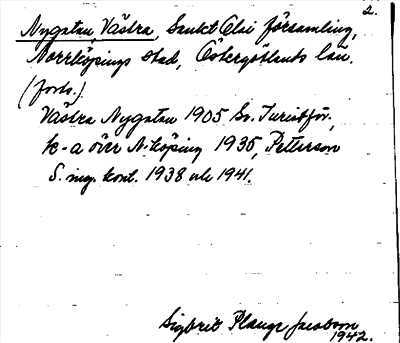 2.
Nygatan, Västra, Sankt Olai församling,
Norrköpings stad, Östergötlands län.
(forts.)
Västra Nygatan 1905 Sv. Turistför.,
k-a över N-köping 1935, Petterson
S. ing. kont. 1938 och 1941.
Sigbrit Plænge Jacobson
1942.